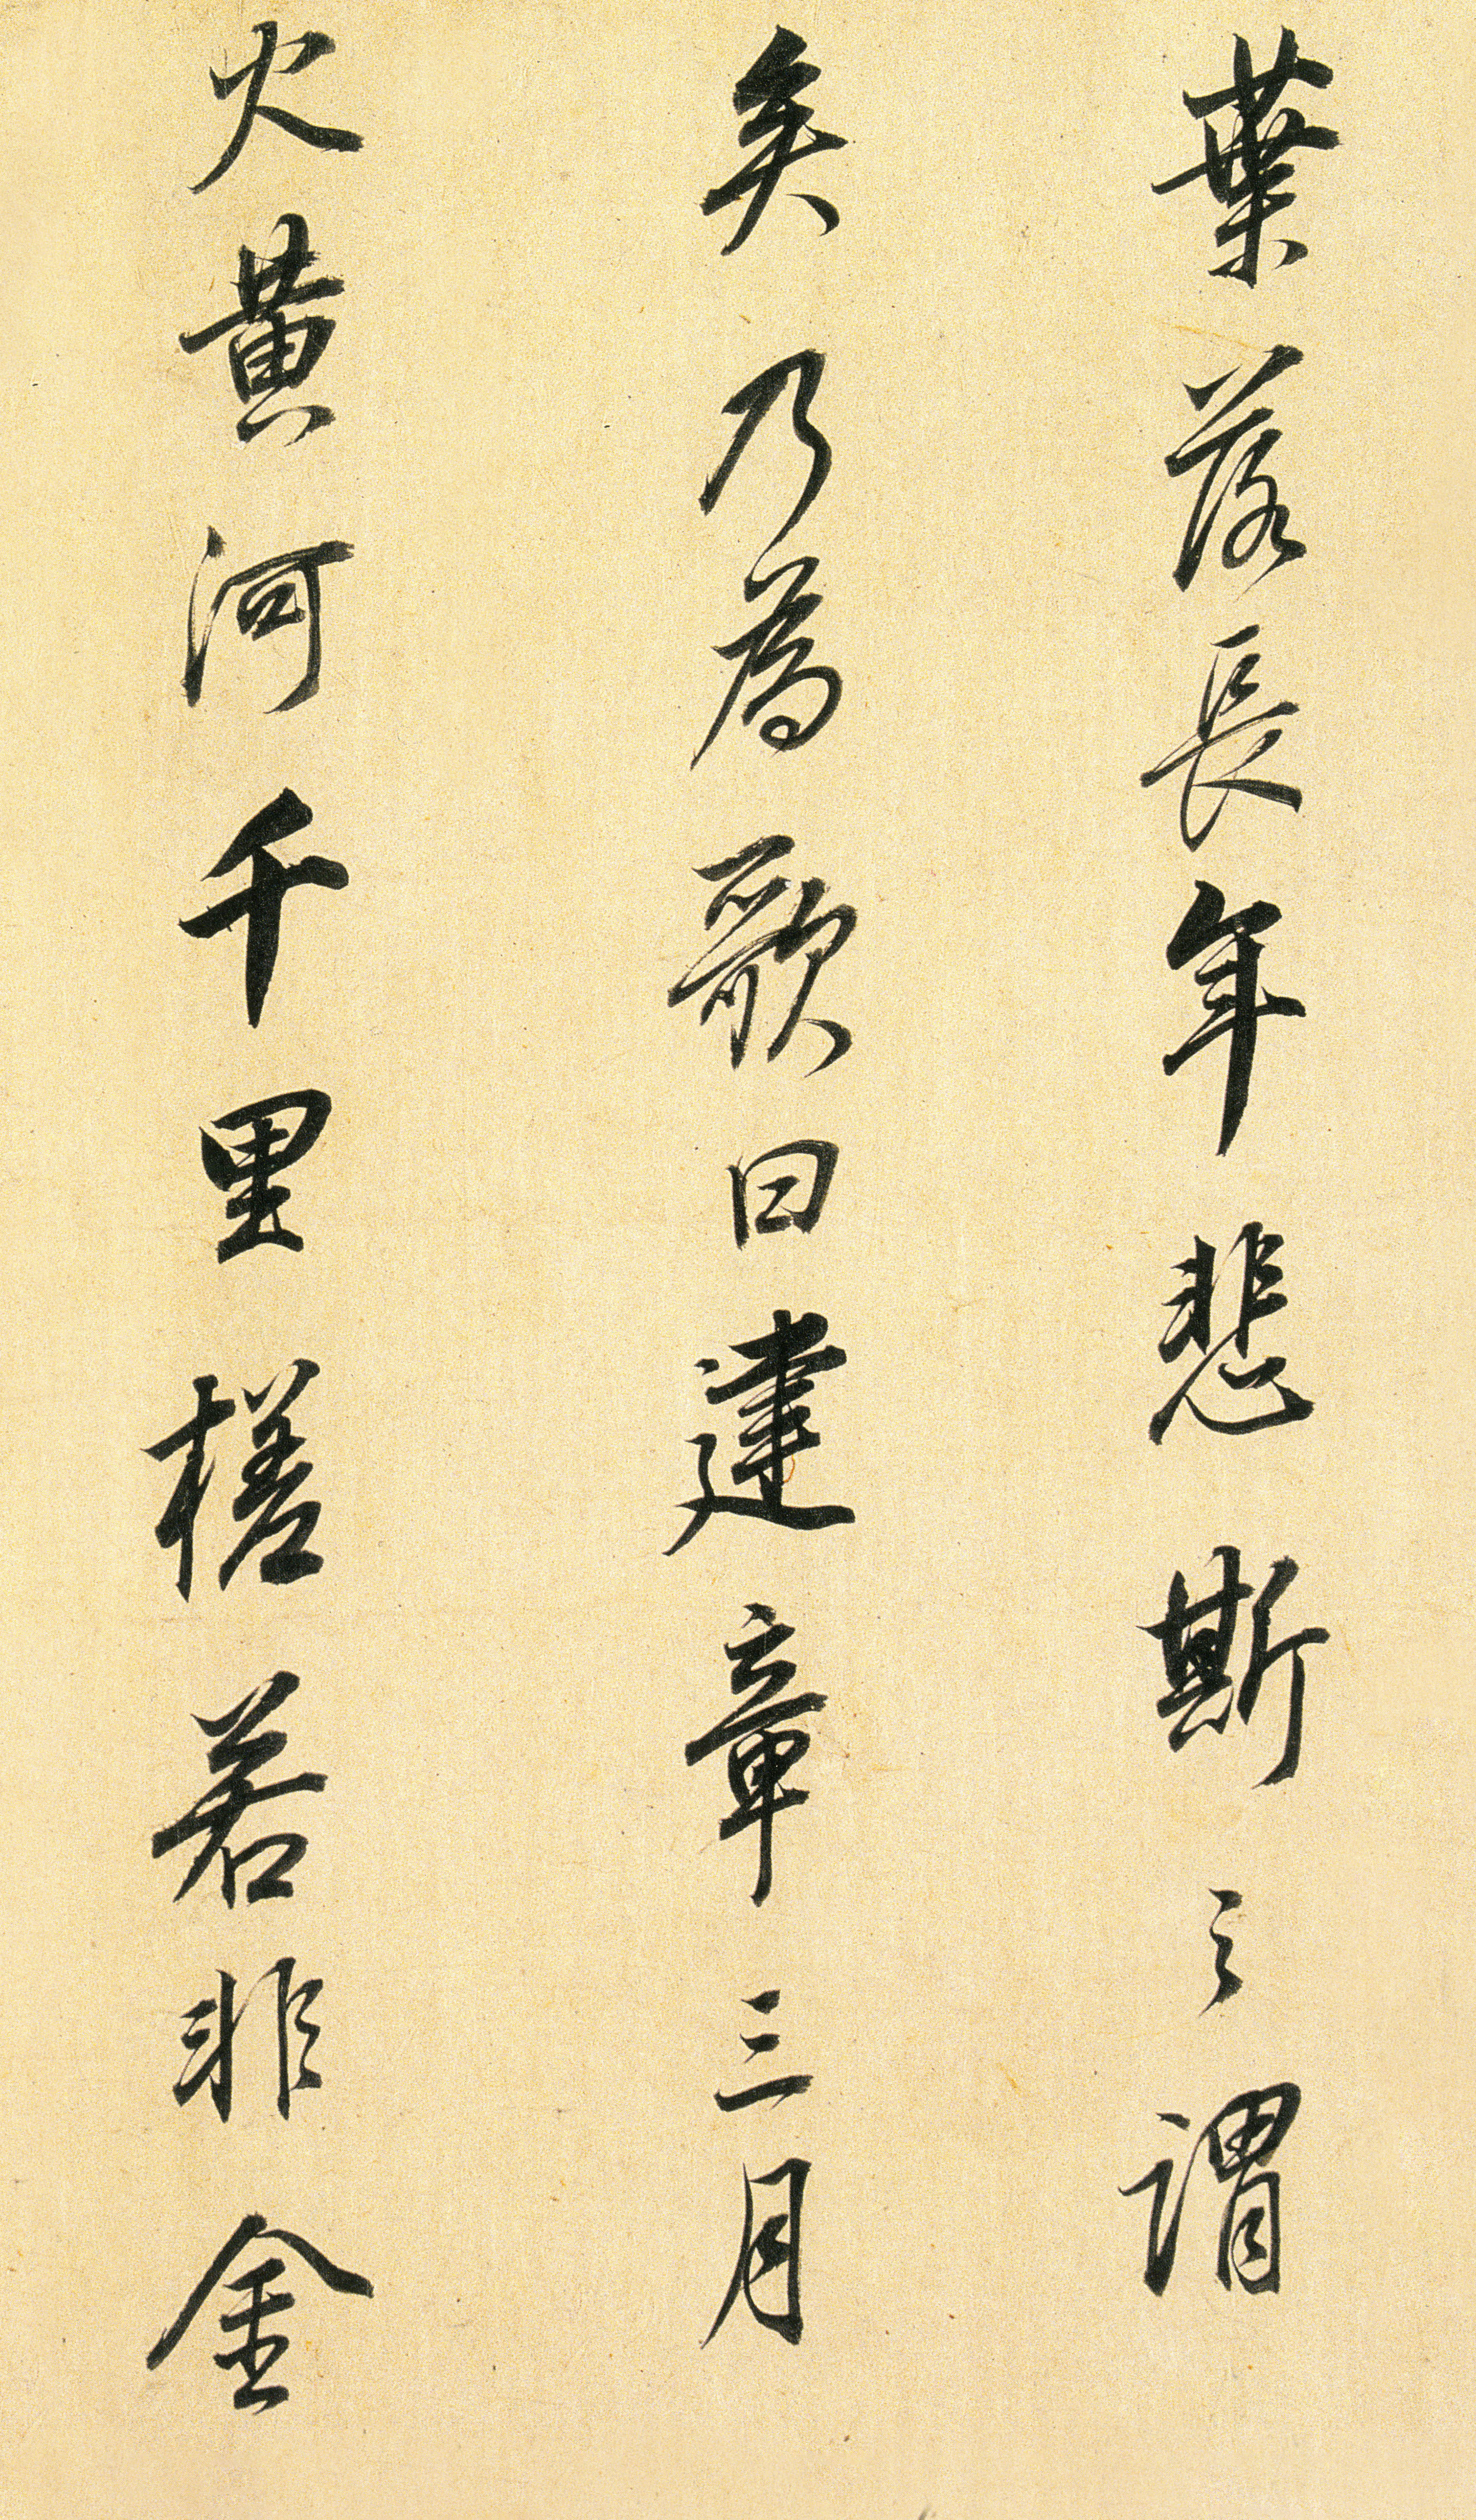 葉落長年悲斯之謂
矣乃為歌曰建章三月
火黄河千里槎若非金